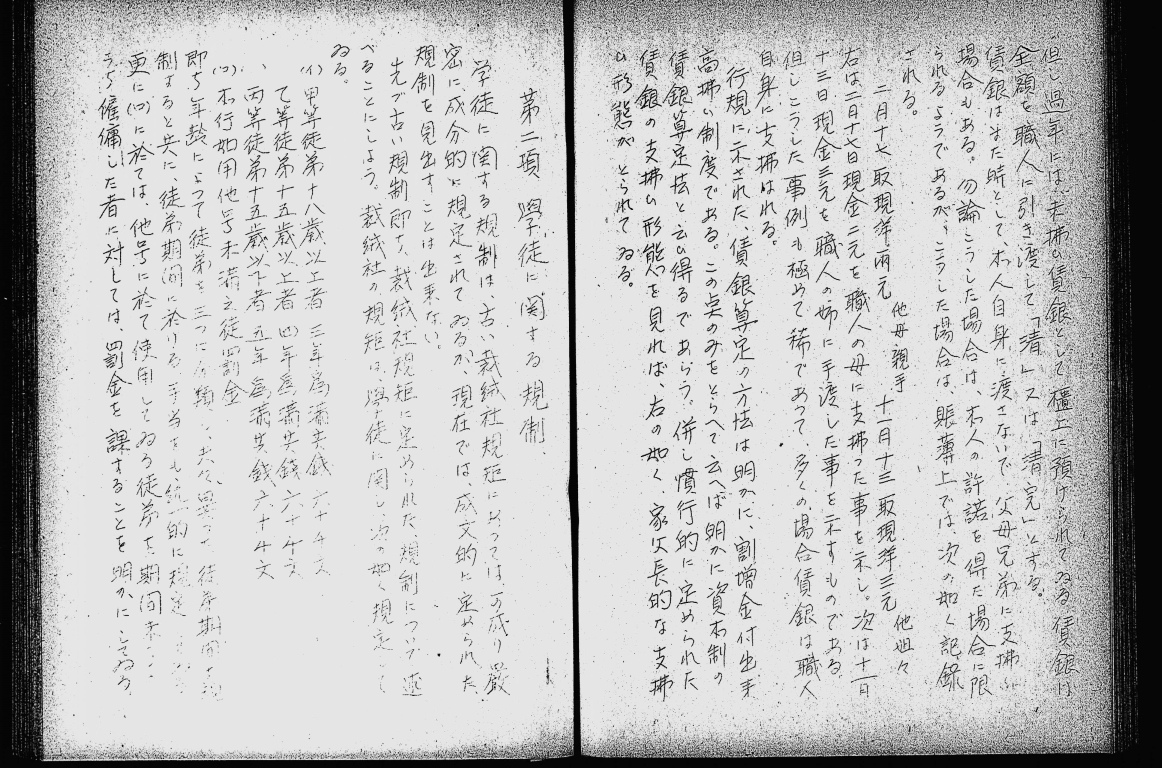 但し過年には、未拂の賃銀として櫃上に預けられてゐる賃銀は
金額を職人に引き渡して「清」又は「清完」とする。
賃銀はまた時として本人自身に渡さないで父母兄弟に支拂ふ
場合もある。勿論こうした場合は、本人の許諾を得た場合に限
られるようであるが、こうした場合は、賬薄上では、次の如く記録
される。
二月十七取現洋兩元 他母親手 十一月十三取現洋三元 他
右は二月十七日現金二元を職人の母に支拂つた事を示し。次は十一月
十三日現金三元を職人の姉に手渡した事を示すものである。
但しこうした事例も極めて稀であつて、多くの場合賃銀は職人
自身に支拂はれる。
行規に示された、賃銀算定の方法は明かに、割増金付出来
高拂い制度である。この点のみをとらへて云へば明かに資本制の
賃銀算定法と云ひ得るであらう。併し慣行的に定められた
賃銀の支拂い形態を見れば、右の如く、家父長的な支拂
い形態がとられてゐる。
第二項 學徒に関する規制
学徒に関する規制は、古い裁絨社規矩にあつては、可成り嚴
密に、成分的に規定されてゐるが、現在では、成文的に定められた
規制を見出すことは出来ない。
先づ古い規制即ち、裁絨社規矩に定められた、規制について述
べることにしよう。裁絨社の規矩は、學徒に関し次の如く規定して
ゐる。
(イ) 甲等徒弟十八歳以上者 三年為滿共銭六十千文
乙等徒弟十五歳以上者 四年為滿共銭六十千文
丙等徒弟十五歳以下者 五年為滿共銭六十千文
(ロ) 本行如用他号未満之徒罰金
即ち年齢によつて徒弟を三つに分類し、夫々異つた徒弟期間を
制すると共に徒弟期間に於ける手当をも、統一的に規定
更に(ロ)に於ては、他号に於て使用してゐる徒弟を期間
うち雇傭した者に対しては、罰金を課することを明かにしてゐる。